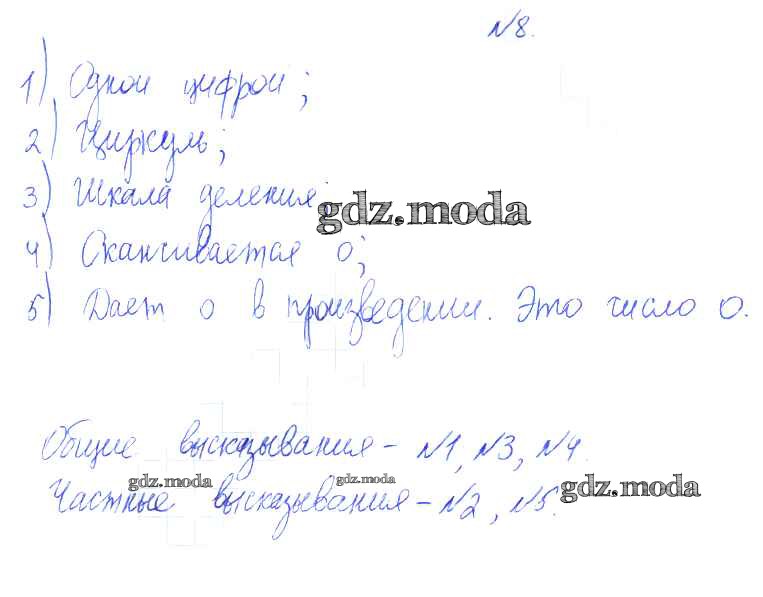 №8.
1) Одной цифрой;
2) Циркуль;
3) Шкала деления;
gdz.moda
4) Оканчивается 0;
5) Дает 0 в произведении. Это число 0.
Общие высказывания - №1, №3, №4.
gdz.moda gdz.moda gdz.moda
Частные высказывания - №2, №5.